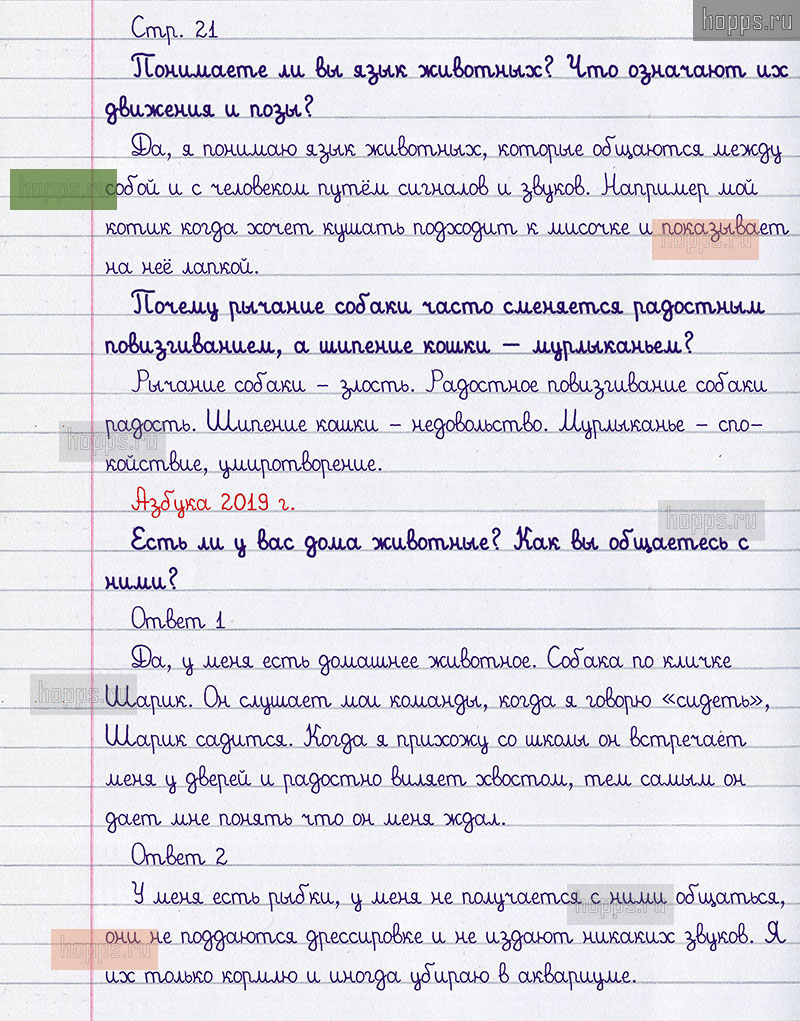 hopps.ru
Стр. 21
Понимаете ли вы язык животных? Что означают их
движения и позы?
Да, я понимаю язык животных, которые общаются между
hopps.ru
собой и с человеком путём сигналов и звуков. Например мой
котик когда хочет кушать подходит к мисочке и показывает
hopps.ru
на неё лапкой.
Почему рычание собаки часто сменяется радостным
повизгиванием, а шипение кошки – мурлыканьем?
Рычание собаки – злость. Радостное повизгивание собаки
радость. Шипение кошки – недовольство. Мурлыканье – спо-
hopps.ru
койствие, умиротворение.
Азбука 2019 г.
hopps.ru
Есть ли у вас дома животные? Как вы общаетесь с
ними?
Ответ 1
Да, у меня есть домашнее животное. Собака по кличке
hopps.ru
Шарик. Он слушает мои команды, когда я говорю «сидеть»,
Шарик садится. Когда я прихожу со школы он встречает
меня у дверей и радостно виляет хвостом, тем самым он
дает мне понять что он меня ждал.
Ответ 2
У меня есть рыбки, у меня не получается с ними общаться,
hopps.ru
они не поддаются дрессировке и не издают никаких звуков. Я
hopps.ru
их только кормлю и иногда убираю в аквариуме.